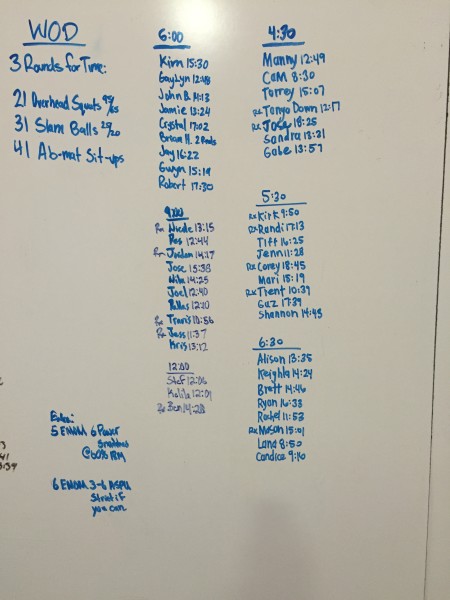 WOD
3 Rounds for Time:
21 Overhead Squats 95/65
31 Slam Balls 25/20
41 Ab-mat Sit-ups
6:00
Kim 15:30
Gaylyn 12:48
John B. 14:13
Jamie 13:24
Crystal 17:02
Brian H. 2 Rnds
Jay 16:22
Gwyn 15:19
Robert 17:30
9:00
Rx Nicole 13:15
Ros 12:44
Rx Jordan 14:17
Jose 15:38
Nila 14:25
Joel 12:40
Dallas 12:10
Rx Travis 10:56
Rx Jess 11:37
Kris 13:12
12:00
Stef 12:06
Kalila 12:01
Rx Ben 14:28
4:30
Manny 12:49
Cam 8:30
Torrey 15:07
Rx Tonya Down 12:17
Rx Jose 18:25
Sandra 13:31
Gabe 13:57
5:30
Rx Kirk 9:50
Rx Randi 17:13
Tiff 16:25
Jenn 11:28
Rx Corey 18:45
Mari 15:19
Rx Trent 10:39
Guz 17:39
Shannon 14:45
6:30
Alison 13:35
Keighla 14:24
Brett 14:46
Ryan 16:38
Rachel 11:53
Rx Mason 15:01
Lana 8:50
Candice 9:10
Extra:
5 EMOM 6 Power
Snatches
@60% 1RM
6 EMOM 3-6 HSPU
Strict if
you can